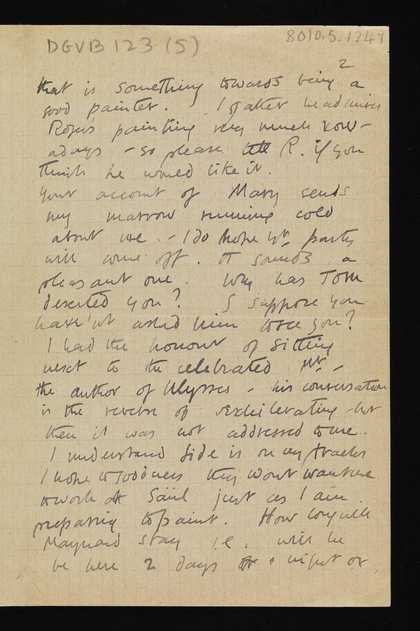 DGVB 123 (5)
8010.5.1247
2
that is something towards being a
good painter. I gather he admires
Rogers painting very much now-
adays - so please tell R. if you
think he would like it.
Your account of Mary sends
my marrow running cold
about me. - I do hope yr party
will come off. It sounds a
pleasant one. Why has Tom
deserted you? I suppose you
have'nt asked him to see you?
I had the honour of sitting
next to the celebrated Mr -
the author of Ulysses - his conversation
is the reverse of exhilerating but
then it was not addressed to me.
I understand Side is on my tracks
I hope to goodness they wont want me
to work at just as I am
preparing to paint. How long will
Maynard stay i.e. will he
be here 2 days + a night or